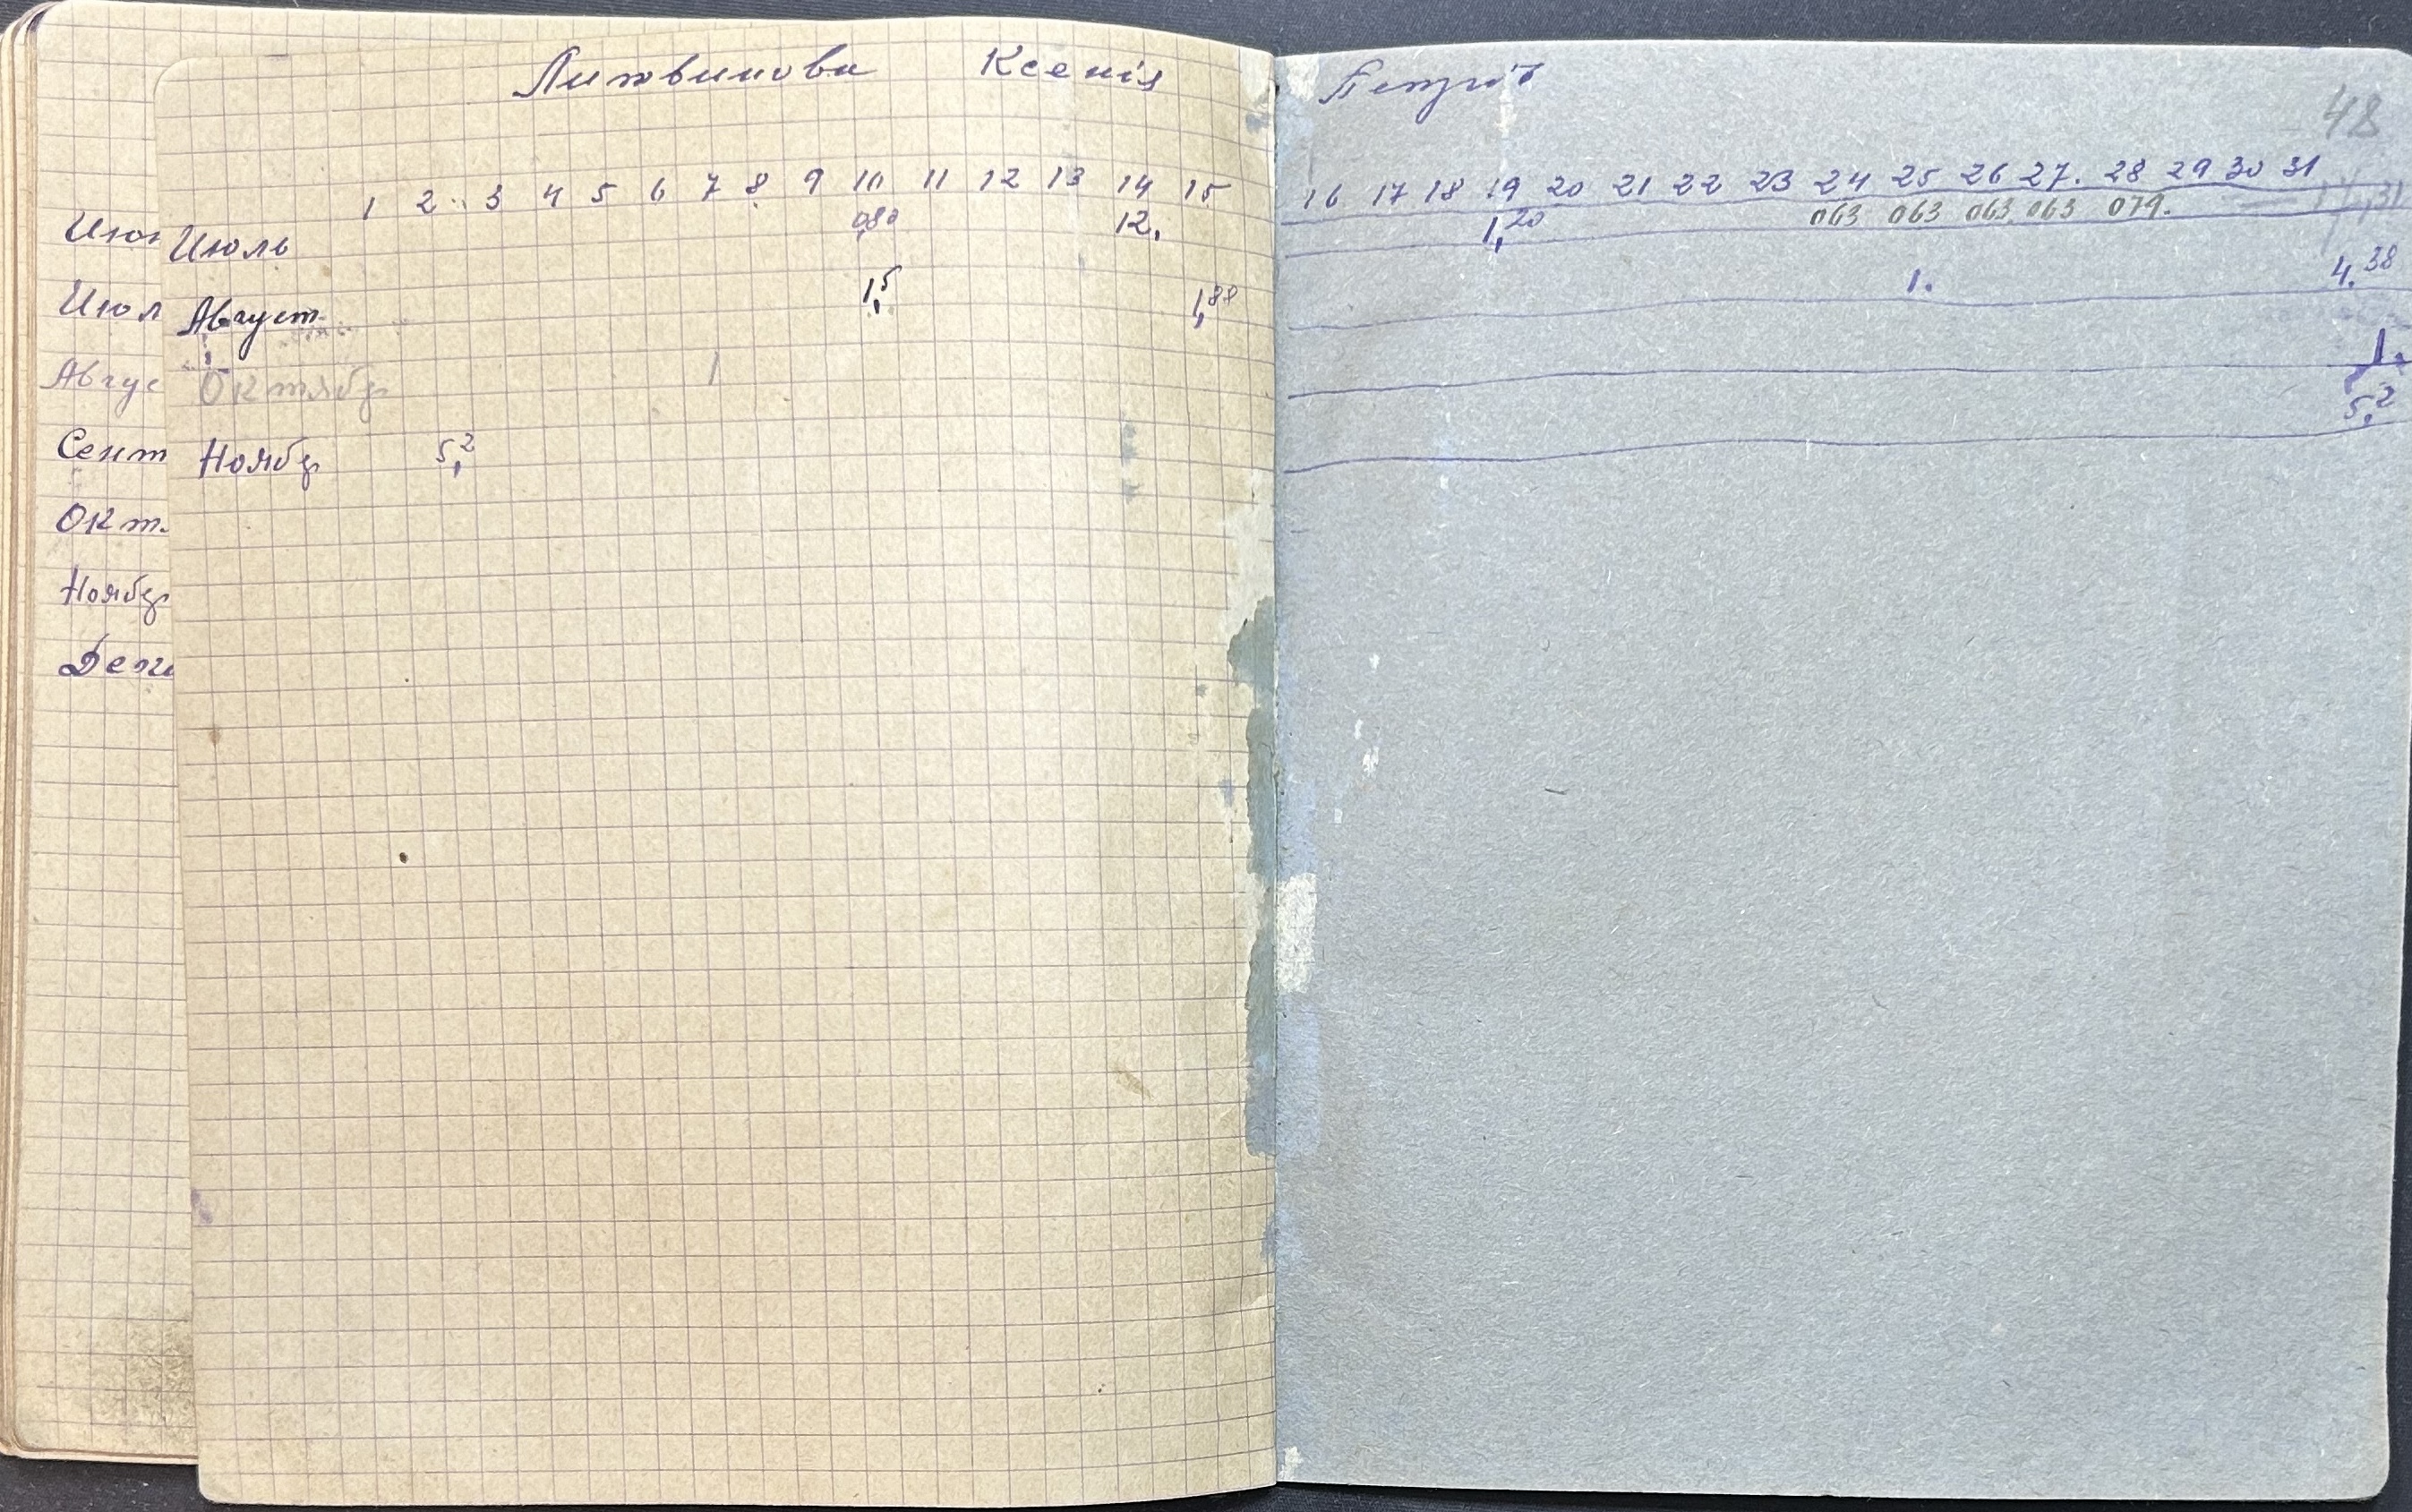 Литвинова Ксенія
48
1 2 3 4 5 6 7 8 9 10 11 12 13 14 15 16 17 18 19 20 21 22 23 24 25 26 27. 28 29 30 31
Июль 0,80 12. 1,20 063 063 063 063 079.
Август 1,5 1,88 1. 4.38
Октябр 1 1.
Ноябр 5,2 5,2
Июл
Авгус
Сент
Окт.
Ноябр